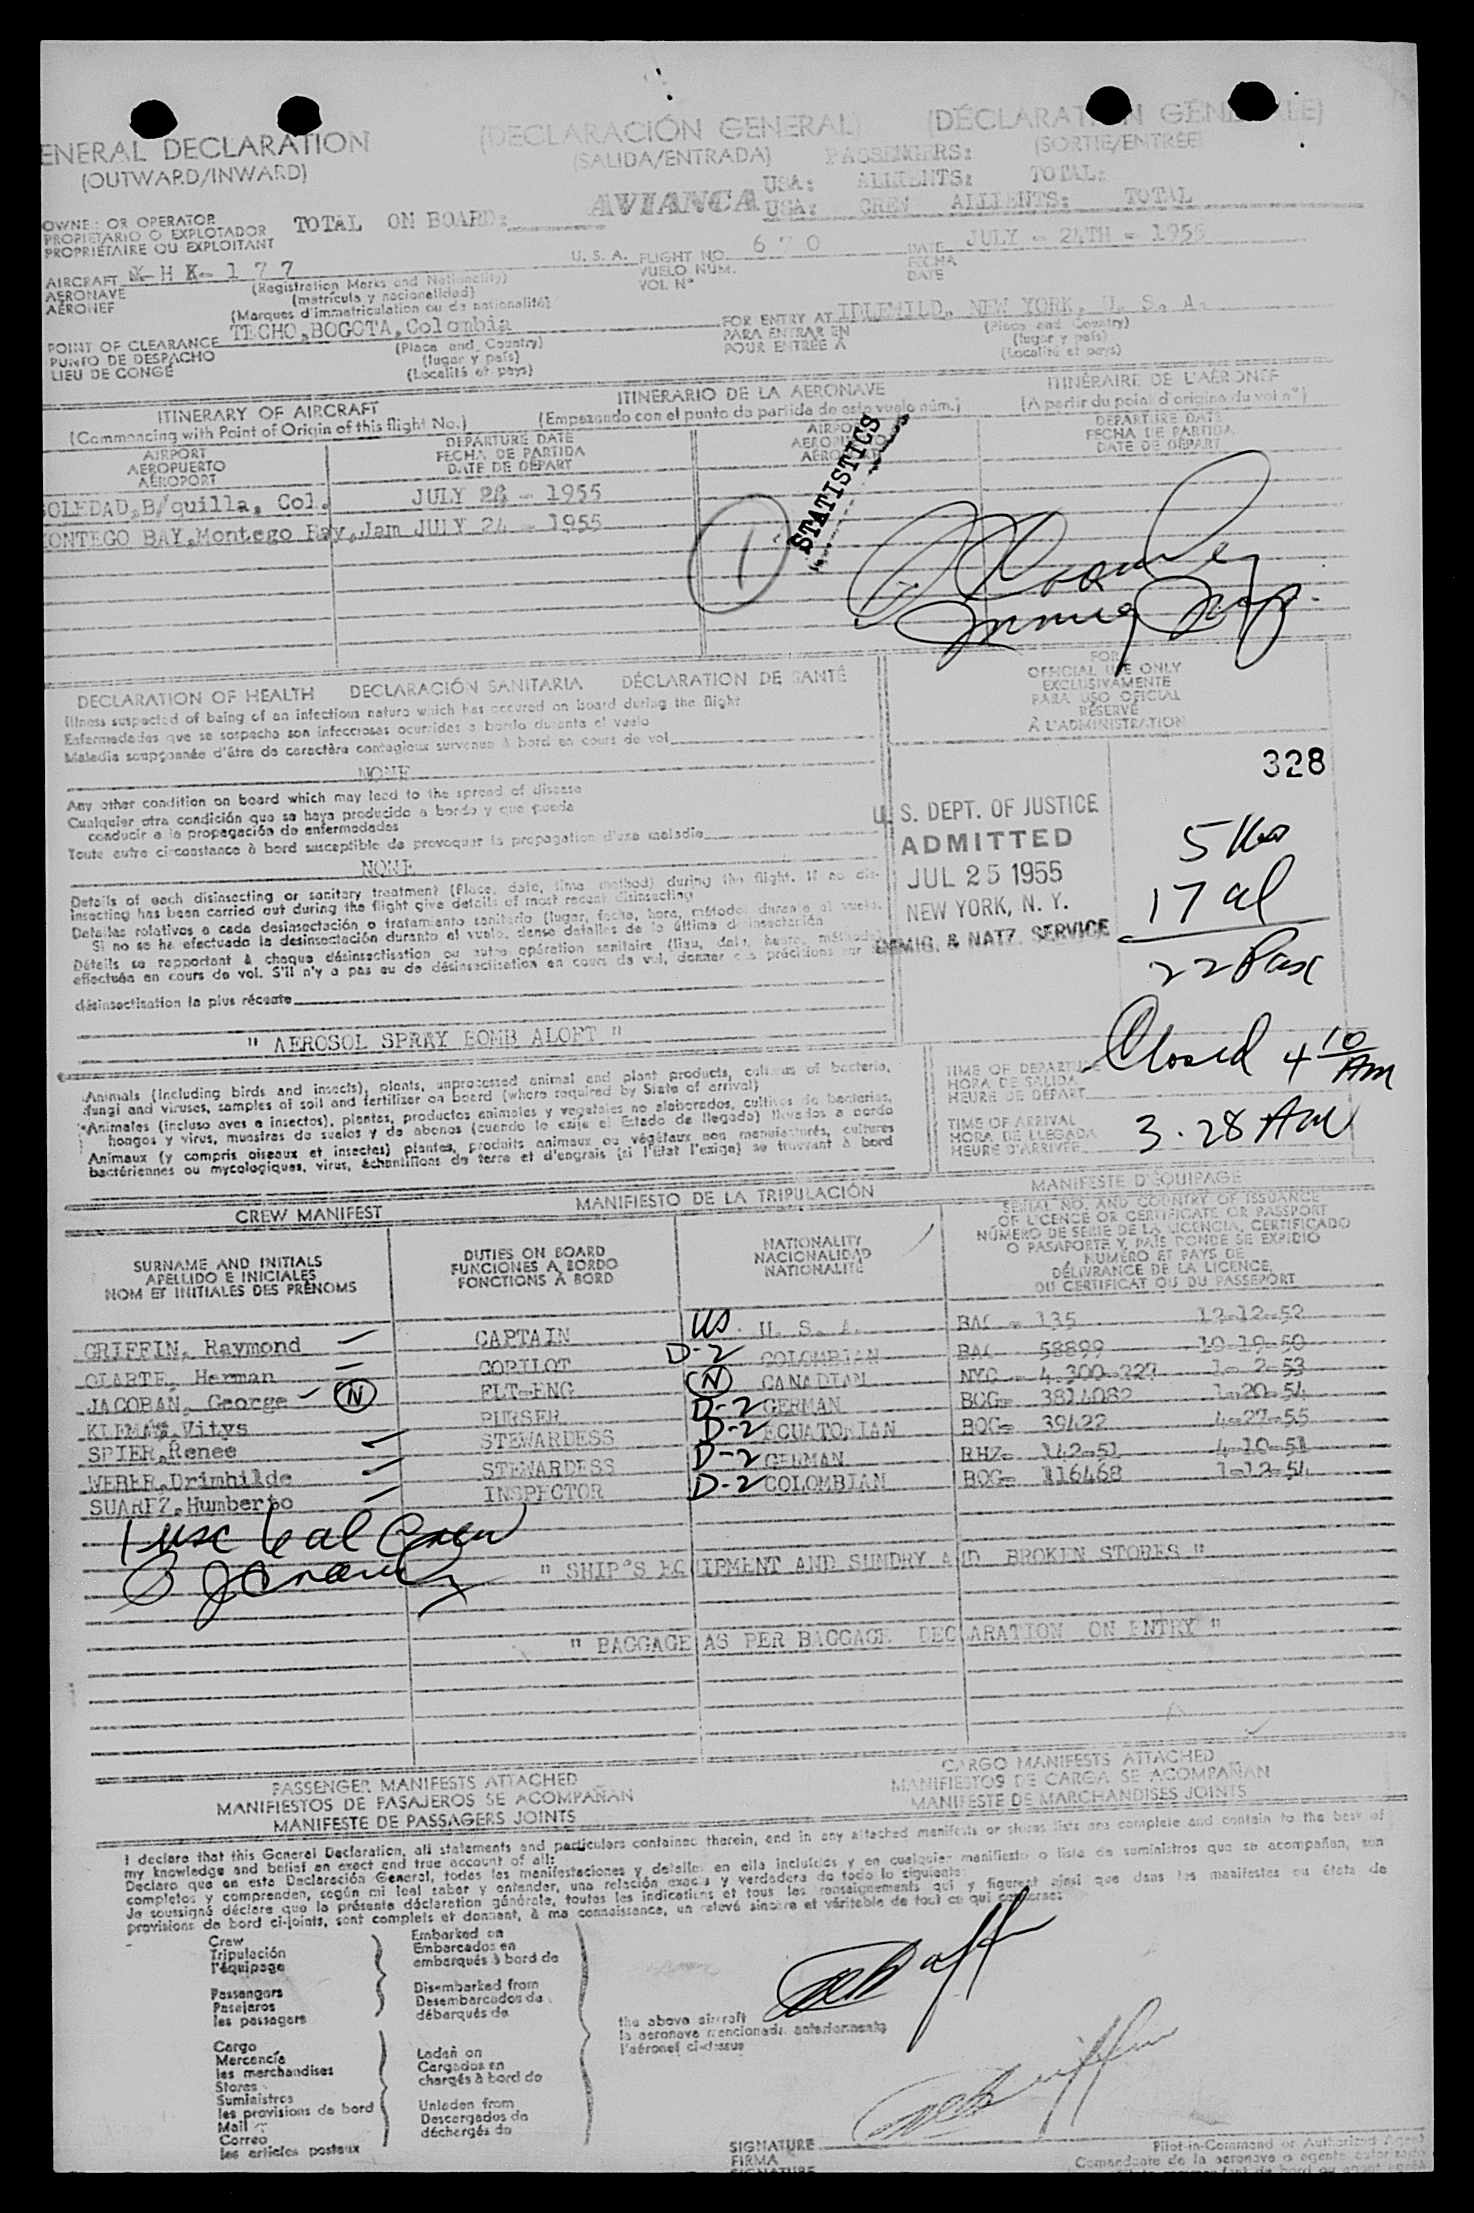 ENERAL DECLARATION
(OUTWARD/INWARD)
(DECLARACIÓN GENERAL)
(SALIDA/ENTRADA)
(DÉCLARAT N GÉN LE)
(SORTIE/ENTRÉE)
PASSENGERS:
USA: ALLIENTS: TOTAL:
OWNER OR OPERATOR
PROPIETARIO O EXPLOTADOR
PROPRIÉTAIRE OU EXPLOITANT
TOTAL ON BOARD:
AVIANCA
USA: CREW ALLIENTS: TOTAL
AIRCRAFT HK-177
AERONAVE
AÉRONEF
(Registration Marks and Nationality)
(matrícula y nacionalidad)
(Marques d'immatriculation ou de nationalité)
U. S. A. FLIGHT NO. 670
VUELO NUM.
VOL N°
DATE JULY - 24TH - 1955
FECHA
DATE
POINT OF CLEARANCE TECHO, BOGOTA, Colombia
PUNTO DE DESPACHO
LIEU DE CONGÉ
(Place and Country)
(lugar y país)
(Localité et pays)
FOR ENTRY AT IDLEWILD, NEW YORK, U. S. A.
PARA ENTRAR EN
POUR ENTRÉE A
(Place and Country)
(lugar y país)
(Localité et pays)
ITINERARY OF AIRCRAFT
(Commencing with Point of Origin of this flight No.)
ITINERARIO DE LA AERONAVE
(Empezando con el punto de partida de este vuelo núm.)
ITINÉRAIRE DE L'AÉRONEF
(A partir du point d'origine du vol n°)
AIRPORT
AEROPUERTO
AÉROPORT
DEPARTURE DATE
FECHA DE PARTIDA
DATE DE DÉPART
DEPARTURE DATE
FECHA DE PARTIDA
DATE DE DÉPART
STATISTICS
OLEDAD, B/quilla, Col. JULY - 1955
ONTEGO BAY, Montego Bay, Jam JULY 24 - 1955
1
Immig Insp.
DECLARATION OF HEALTH DECLARACIÓN SANITARIA DÉCLARATION DE SANTÉ
Illness suspected of being of an infectious nature which has occured on board during the flight
Enfermedades que se sospecha son infecciosas ocurridas a bordo durante el vuelo
Maladie soupçonnée d'être de caractère contagieux survenue à bord en cours de vol
NONE
Any other condition on board which may lead to the spread of disease
Cualquier otra condición que se haya producido a bordo y que pueda
conducir a la propagación de enfermedades
Toute autre circonstance à bord susceptible de provoquer la propagation d'une maladie
NONE
Details of each disinsecting or sanitary treatment (Place, date, time, method) during the flight. If no dis-
insecting has been carried out during the flight give details of most recent disinsecting
Detalles relativos a cada desinsectación o tratamiento sanitario (lugar, fecha, hora, método) durante el vuelo.
Si no se ha efectuado la desinsectación durante el vuelo, dense detalles de la última desinsectación
Détails se rapportant à chaque désinsectisation ou autre opération sanitaire (lieu, date, heure, méthode)
effectuée en cours de vol. S'il n'y a pas eu de désinsectisation en cours de vol, donner des précisions sur
désinsectisation la plus récente
" AEROSOL SPRAY BOMB ALOFT "
FOR
OFFICIAL USE ONLY
EXCLUSIVAMENTE
PARA USO OFICIAL
RÉSERVÉ
À L'ADMINISTRATION
328
U. S. DEPT. OF JUSTICE
ADMITTED
JUL 25 1955
NEW YORK, N. Y.
IMMIG. & NATZ. SERVICE
17 al
22 Pax
Closed 4 10 AM
Animals (including birds and insects), plants, unprocessed animal and plant products, cultures of bacteria,
fungi and viruses, samples of soil and fertilizer on board (where required by State of arrival)
Animales (incluso aves e insectos), plantas, productos animales y vegetales no elaborados, cultivos de bacterias,
hongos y virus, muestras de suelos y de abonos (cuando lo exija el Estado de llegada) llevados a bordo
Animaux (y compris oiseaux et insectes) plantes, produits animaux ou végétaux non manufacturés, cultures
bactériennes ou mycologiques, virus, échantillons de terre et d'engrais (si l'État l'exige) se trouvant à bord
TIME OF DEPARTURE
HORA DE SALIDA
HEURE DE DÉPART
TIME OF ARRIVAL
HORA DE LLEGADA
HEURE D'ARRIVÉE
3.28 AM
CREW MANIFEST
MANIFIESTO DE LA TRIPULACIÓN
MANIFESTE D'ÉQUIPAGE
SURNAME AND INITIALS
APELLIDO E INICIALES
NOM ET INITIALES DES PRÉNOMS
DUTIES ON BOARD
FUNCIONES A BORDO
FONCTIONS À BORD
NATIONALITY
NACIONALIDAD
NATIONALITÉ
SERIAL NO. AND COUNTRY OF ISSUANCE
OF LICENCE OR CERTIFICATE OR PASSPORT
NÚMERO DE SERIE DE LA LICENCIA, CERTIFICADO
O PASAPORTE Y PAÍS DONDE SE EXPIDIÓ
NUMÉRO ET PAYS DE
DÉLIVRANCE DE LA LICENCE,
DU CERTIFICAT OU DU PASSEPORT
GRIFFIN, Raymond CAPTAIN US. U. S. A. 135 12-12-52
OLARTE, Herman COPILOT D-2 COLOMBIAN 58899 10-19-50
JACOBAN, George N FLT-ENG N CANADIAN NYC - 4.300-227 1- 2-53
Vitys PURSER D-2 GERMAN BOG- 3814082 1-20-54
SPIER, Renee STEWARDESS D-2 ECUATORIAN BOG- 39422 4-27-55
WEBER, Drimhilde STEWARDESS D-2 GERMAN RHZ- 142-51 4-10-51
SUAREZ, Humberto INSPECTOR D-2 COLOMBIAN BOG- 116468 1-12-54
1 usc 6 al Crew
" SHIP'S EQUIPMENT AND SUNDRY AND BROKEN STORES "
" BAGGAGE AS PER BAGGAGE DECLARATION ON ENTRY "
PASSENGER MANIFESTS ATTACHED
MANIFIESTOS DE PASAJEROS SE ACOMPAÑAN
MANIFESTE DE PASSAGERS JOINTS
CARGO MANIFESTS ATTACHED
MANIFIESTOS DE CARGA SE ACOMPAÑAN
MANIFESTE DE MARCHANDISES JOINTS
I declare that this General Declaration, all statements and particulars contained therein, and in any attached manifests or stores lists are complete and contain to the best of
my knowledge and belief an exact and true account of all:
Declaro que en esta Declaración General, todas las manifestaciones y detalles en ella incluídos y en cualquier manifiesto o lista de suministros que se acompañan, son
completos y comprenden, según mi leal saber y entender, una relación exacta y verdadera de todo lo siguiente:
Je soussigné déclare que la présente déclaration générale, toutes les indications et tous les renseignements qui y figurent ainsi que dans les manifestes ou états de
provisions de bord ci-joints, sont complets et donnent, à ma connaissance, un relevé sincère et véritable de tout ce qui concerne:
Crew
Tripulación
l'équipage
Passengers
Pasajeros
les passagers
Cargo
Mercancía
les marchandises
Stores
Suministros
les provisions de bord
Mail
Correo
les articles postaux
Embarked on
Embarcados en
embarqués à bord de
Disembarked from
Desembarcados de
débarqués de
Laden on
Cargados en
chargés à bord de
Unladen from
Descargados de
déchargés de
the above aircraft
la aeronave mencionada anteriormente
l'aéronef ci-dessus
SIGNATURE
FIRMA
SIGNATURE
Pilot-in-Command or Authorized Agent
Comandante de la aeronave o agente autorizado